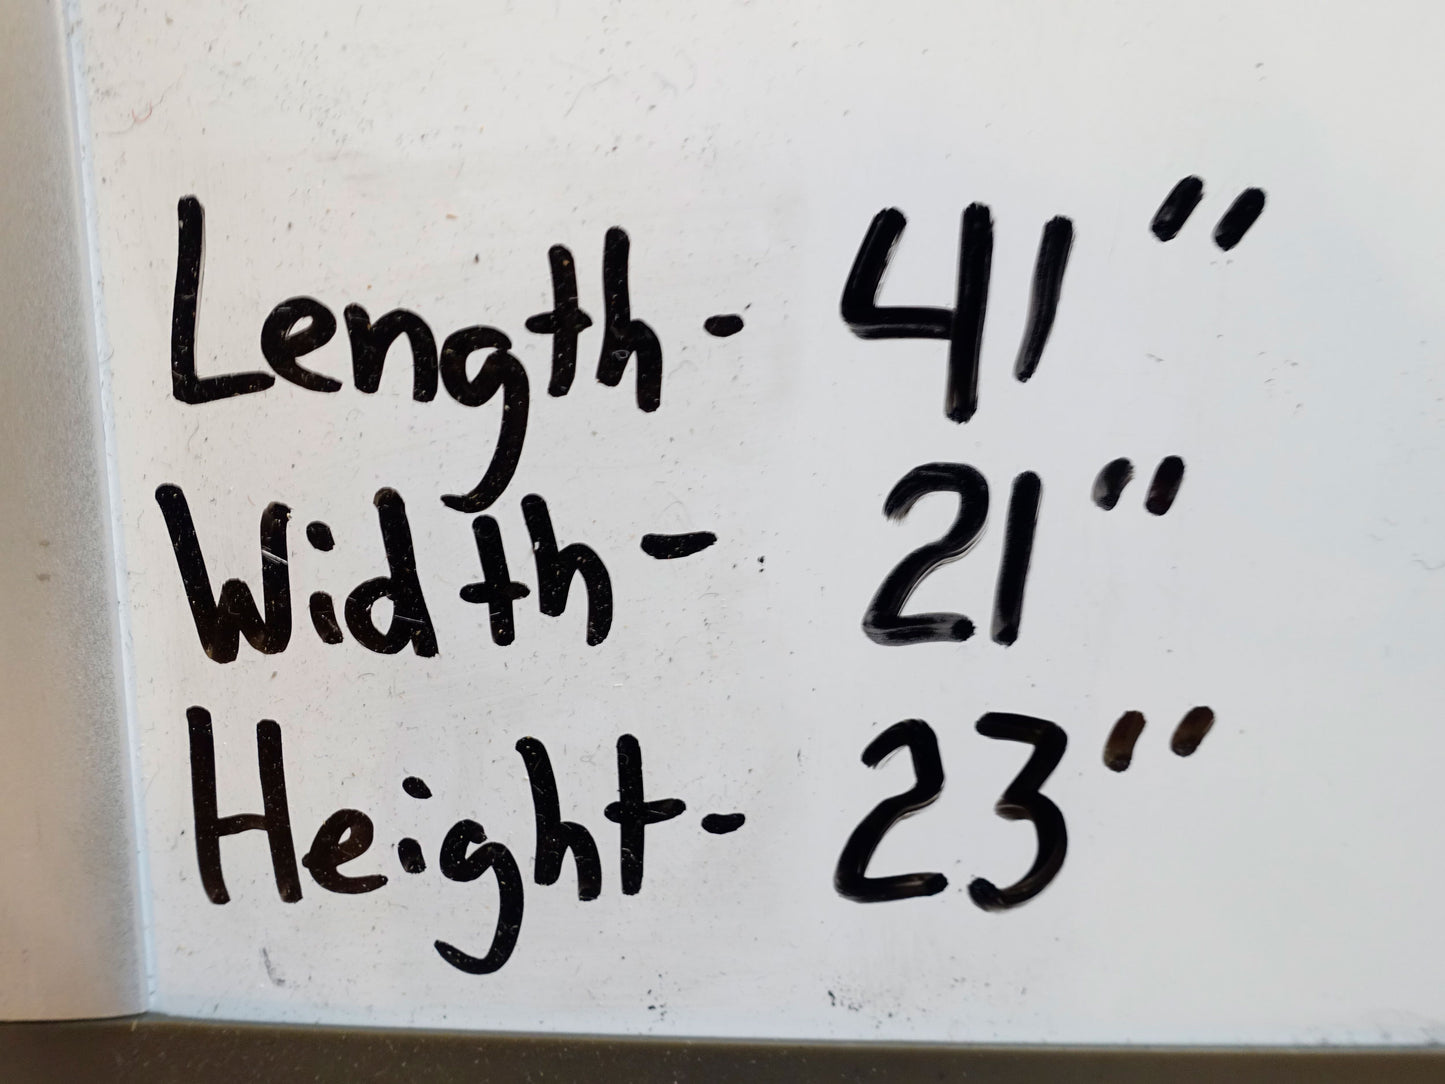 Length- 41"
Width- 21"
Height- 23"